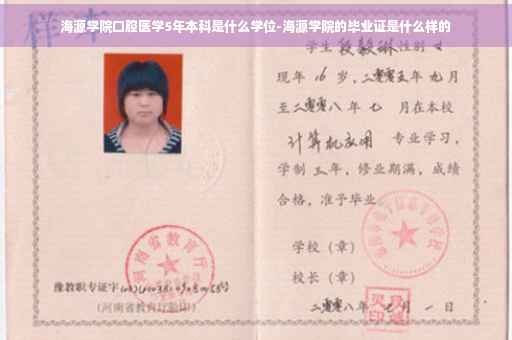 海源学院口腔医学5年本科是什么学位-海源学院的毕业证是什么样的
样本
学生 段毅琳 性别 女
现年 16 岁，二零零五年 九月
至二零零八年 七 月在本校
计算机应用 专业学习，
学制 三 年，修业期满，成绩
合格，准予毕业
学校（章）
校长（章）
二零零八年 七 月 一 日
河南省教育厅
豫教职专证字
（河南省教育厅验印）